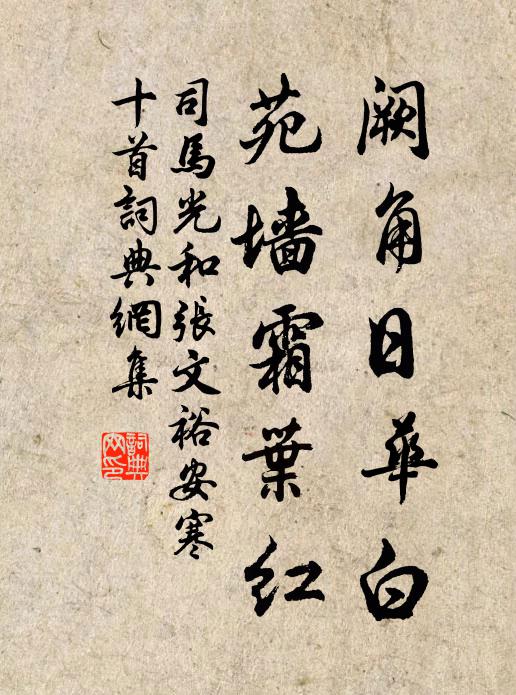 阙角日華白
苑墙霜葉红
司馬光和張文裕安寒
十首詞典網集
詞典网印